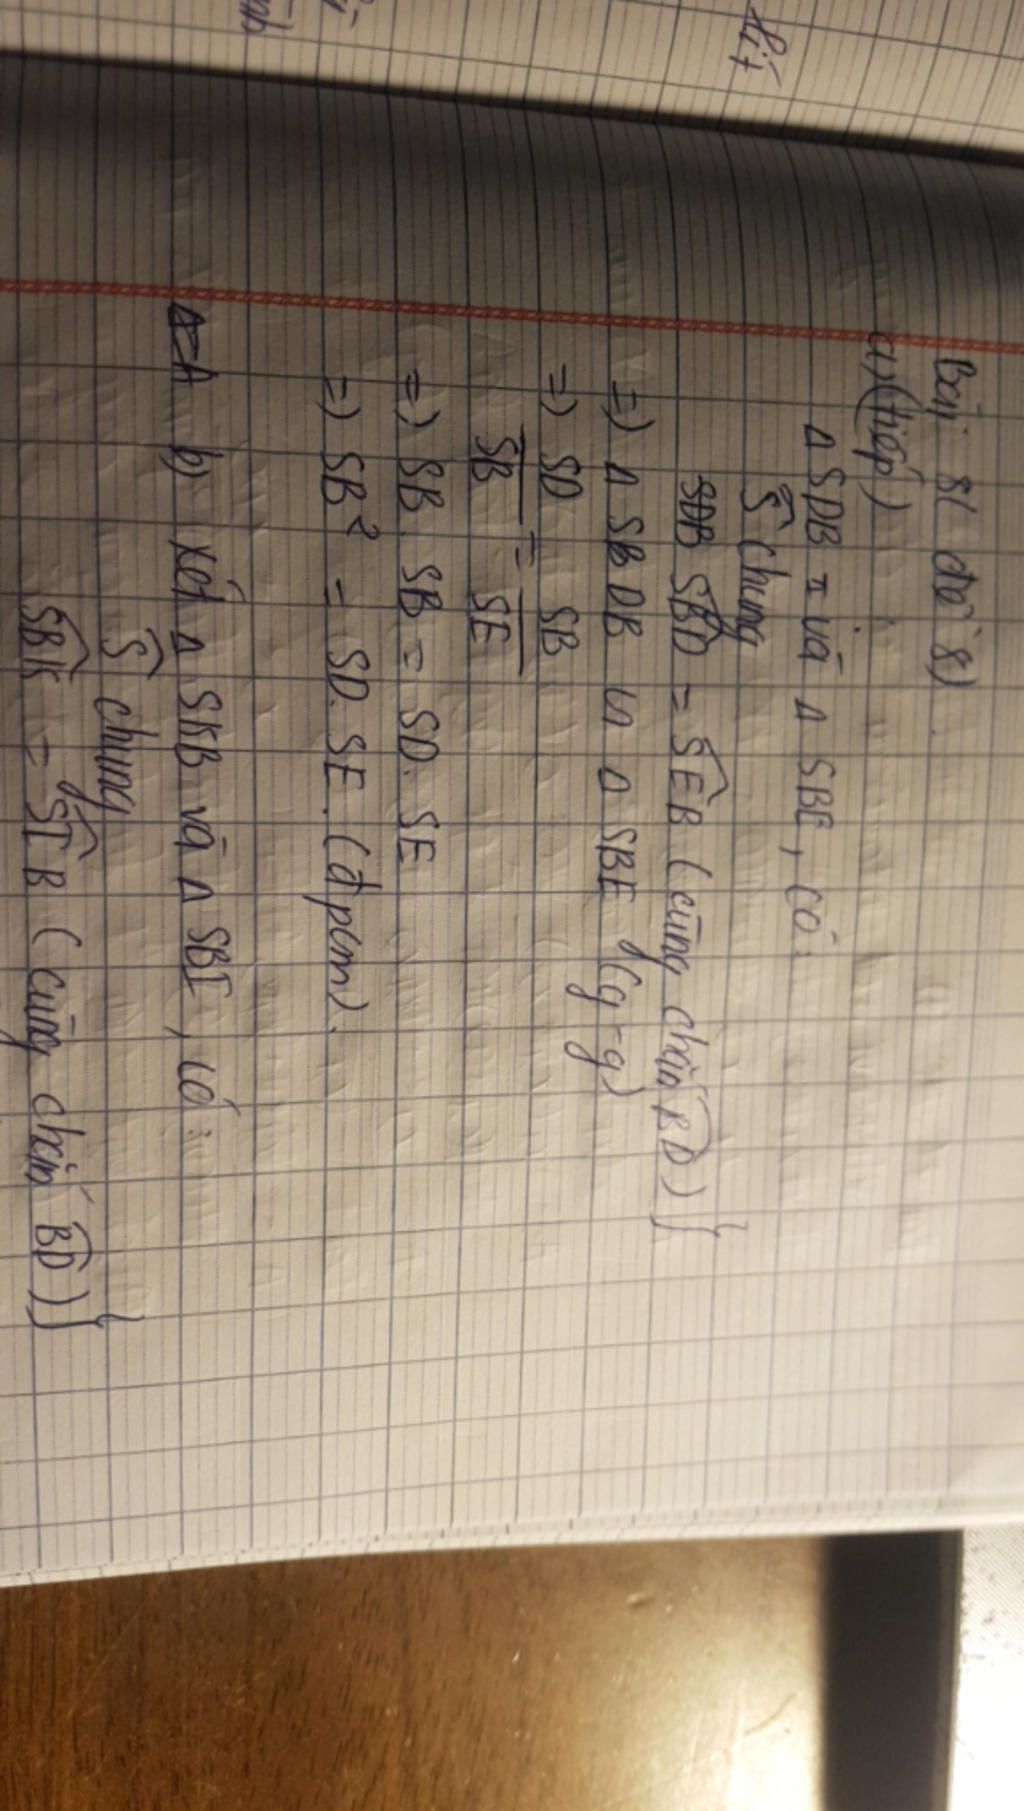 Bài 8( đề 8)
a)(tiếp)
Δ SDB và Δ SBE, có:
Ŝ chung
SDB SBD = SEB (cùng chắn BD) }
=) Δ SBDB ᔕ Δ SBE (g-g)
=) SD/SB = SB/SE
=) SB. SB = SD. SE
=) SB² = SD. SE. (đpcm).
b) Xét Δ SKB và Δ SBI, có:
Ŝ chung
SBK = SIB (cùng chắn BD) }